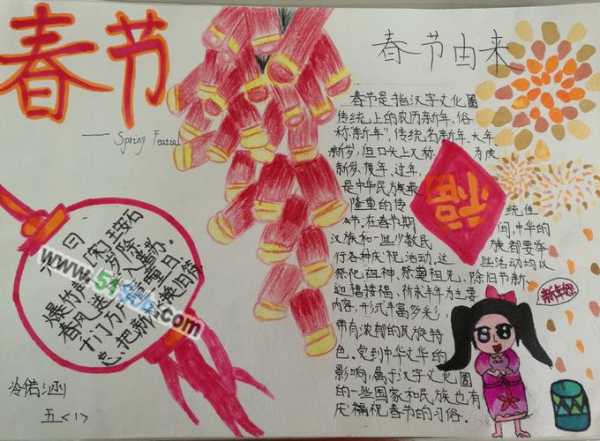 春节
Spring Festival
春节由来
春节是指汉字文化圈
传统上的农历新年,俗
称"新年",传统名新年、大年、
新岁,但口头上又称
度岁、
新岁、庆年、过年,
是中华民族最
隆重的传
统佳
节。在春节期
间,中华的
汉族和一些少数民
族都要举
行各种庆祝活动,这
些活动均以
祭祀祖神、祭奠祖先、除旧布新、
迎禧接福、祈求丰年为主要
内容,形式丰富多彩,
带有浓郁的民族特
色。受到中华文华的
影响,属于汉字文化圈
的一些国家和民族也有
庆福祝春节的习俗。
福
新年好
[宋]王安石
爆竹
春风送
千门万户
总把新
五<1>